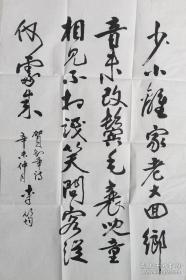 少小離家老大回鄉
音未改鬢毛衰兒童
相見不相識笑問客從
何處來
賀知章詩
辛未仲月